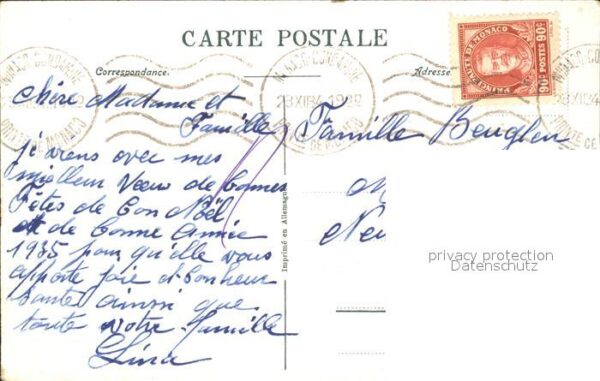 CARTE POSTALE
Correspondance.
Adresse
PRINCIPAUTÉ DE MONACO
90c POSTES 90c
MONACO CONDAMINE
23 XII 34
Chère Madame et
Famille
Famille Beuglen
je viens avec mes
meilleur Vœux de bonnes
Fêtes de bon Noël
et de bonne Année
1935 pour qu'elle vous
apporte joie et bonheur
santé ainsi que
toute votre famille
Lina
Imprimé en Allemagne
privacy protection
Datenschutz